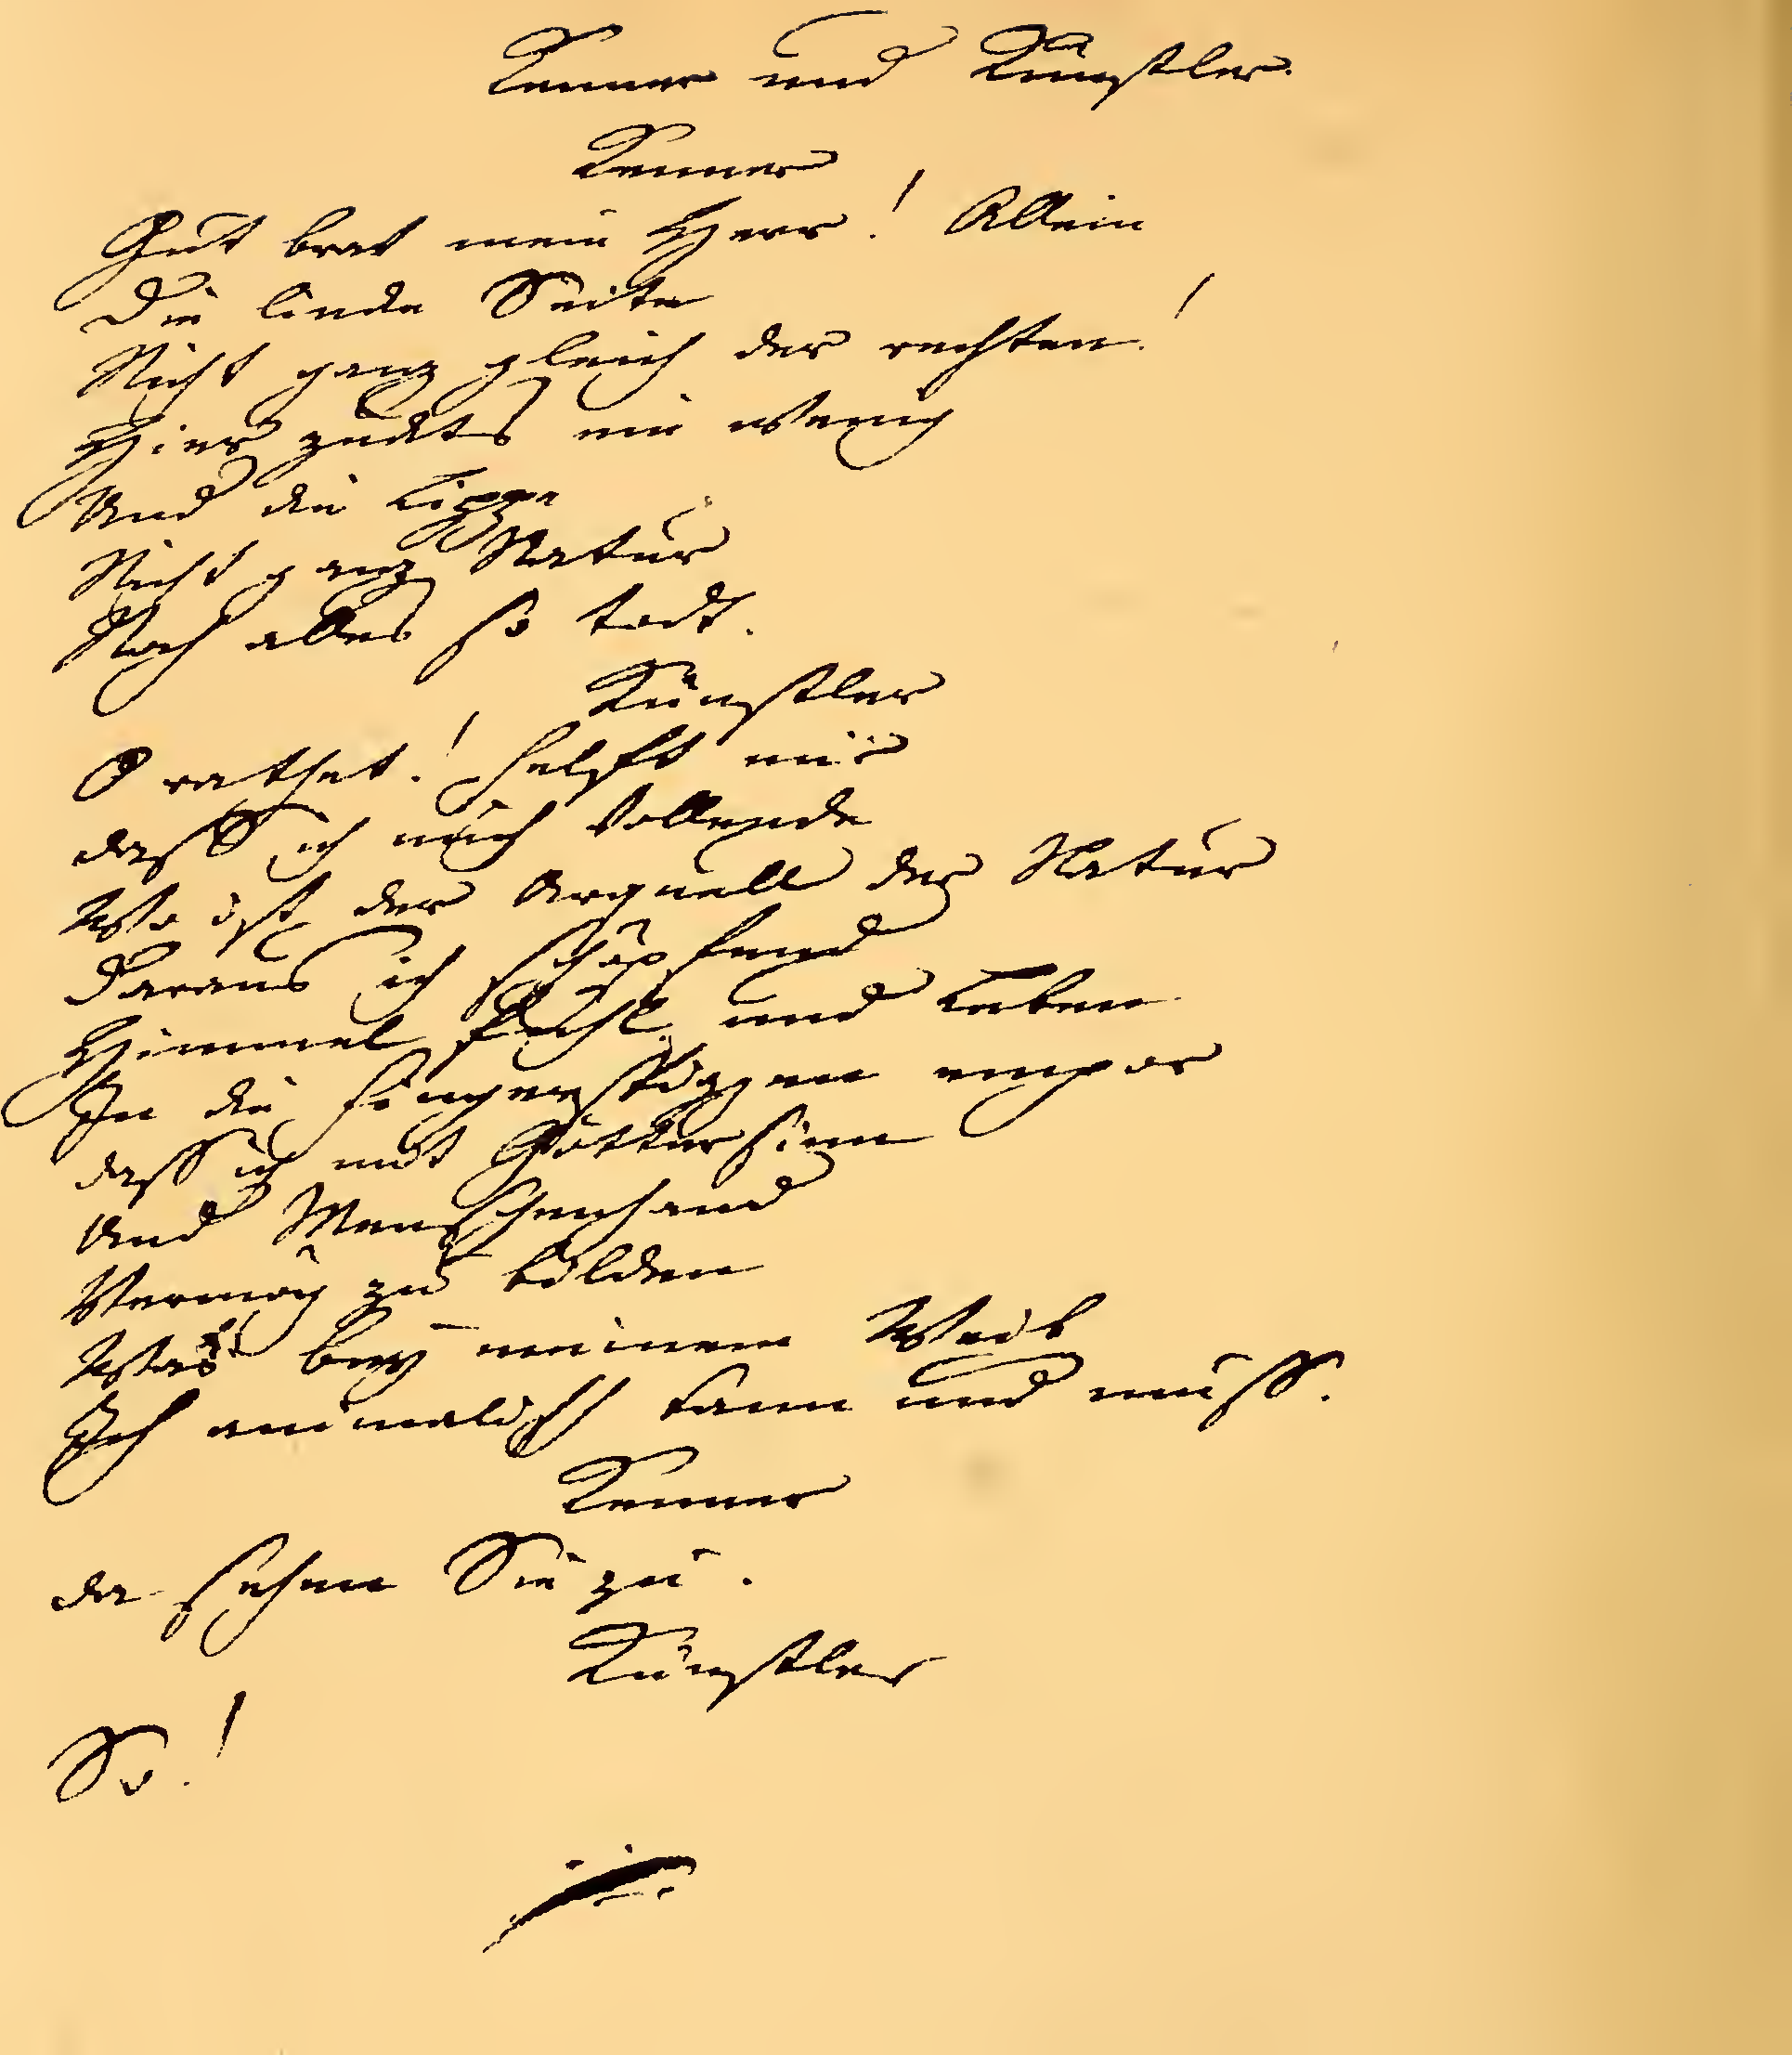 Kenner und Künstler.
Kenner
Gut brav mein Herr! Allein
Die lincke Seite
Nicht ganz gleich der rechten!
Hier zuckts ein wenig
Und die Lippe
Nicht ganz Natur
Noch alles so todt.
Künstler
O rathet! helft mir
dass ich mich vollende
Wo ist der Urquell der Natur
Daraus ich schöpfend
Himmel fühl und Leben
In die Fingerspizzen empor
dass ich mit Göttersinn
Und Menschenhand
Vermög zu bilden
Was bey meinem Weib
Ich animalisch kann und muss.
Kenner
da sehen Sie zu.
Künstler
So!